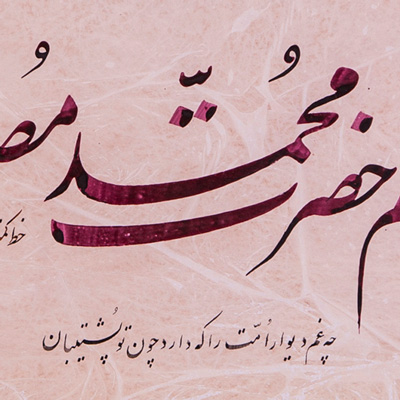 حضرت محمّد
چه غم دیوار اُمّت را که دارد چون تو پُشتیبان